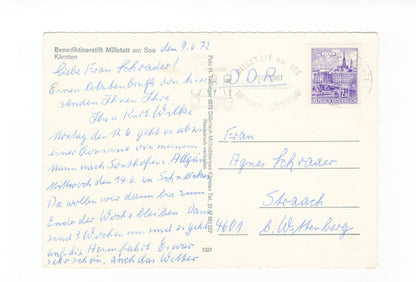 Benediktinerstift Millstatt am See
Kärnten
den 9.6.72
Liebe Frau Schrader!
Einen letzten Gruß von hier
senden Ihnen Ihre
Ihre Kurt Wilke
Montag den 12.6 geht es ab
einer von meinem
Mann nach Sonthofen Allgäu
Mittwoch den 14.6.
Da wollen wir dann bis zum
Ende der Woche bleiben. Dann
sind 3 Wochen um und es geht
auf die Heimfahrt. Es war
sehr schön, auch das Wetter
DDR
MILLSTATT AM SEE
Frau
Agnes Schrader
Straach
4601 b. Wittenberg
1221